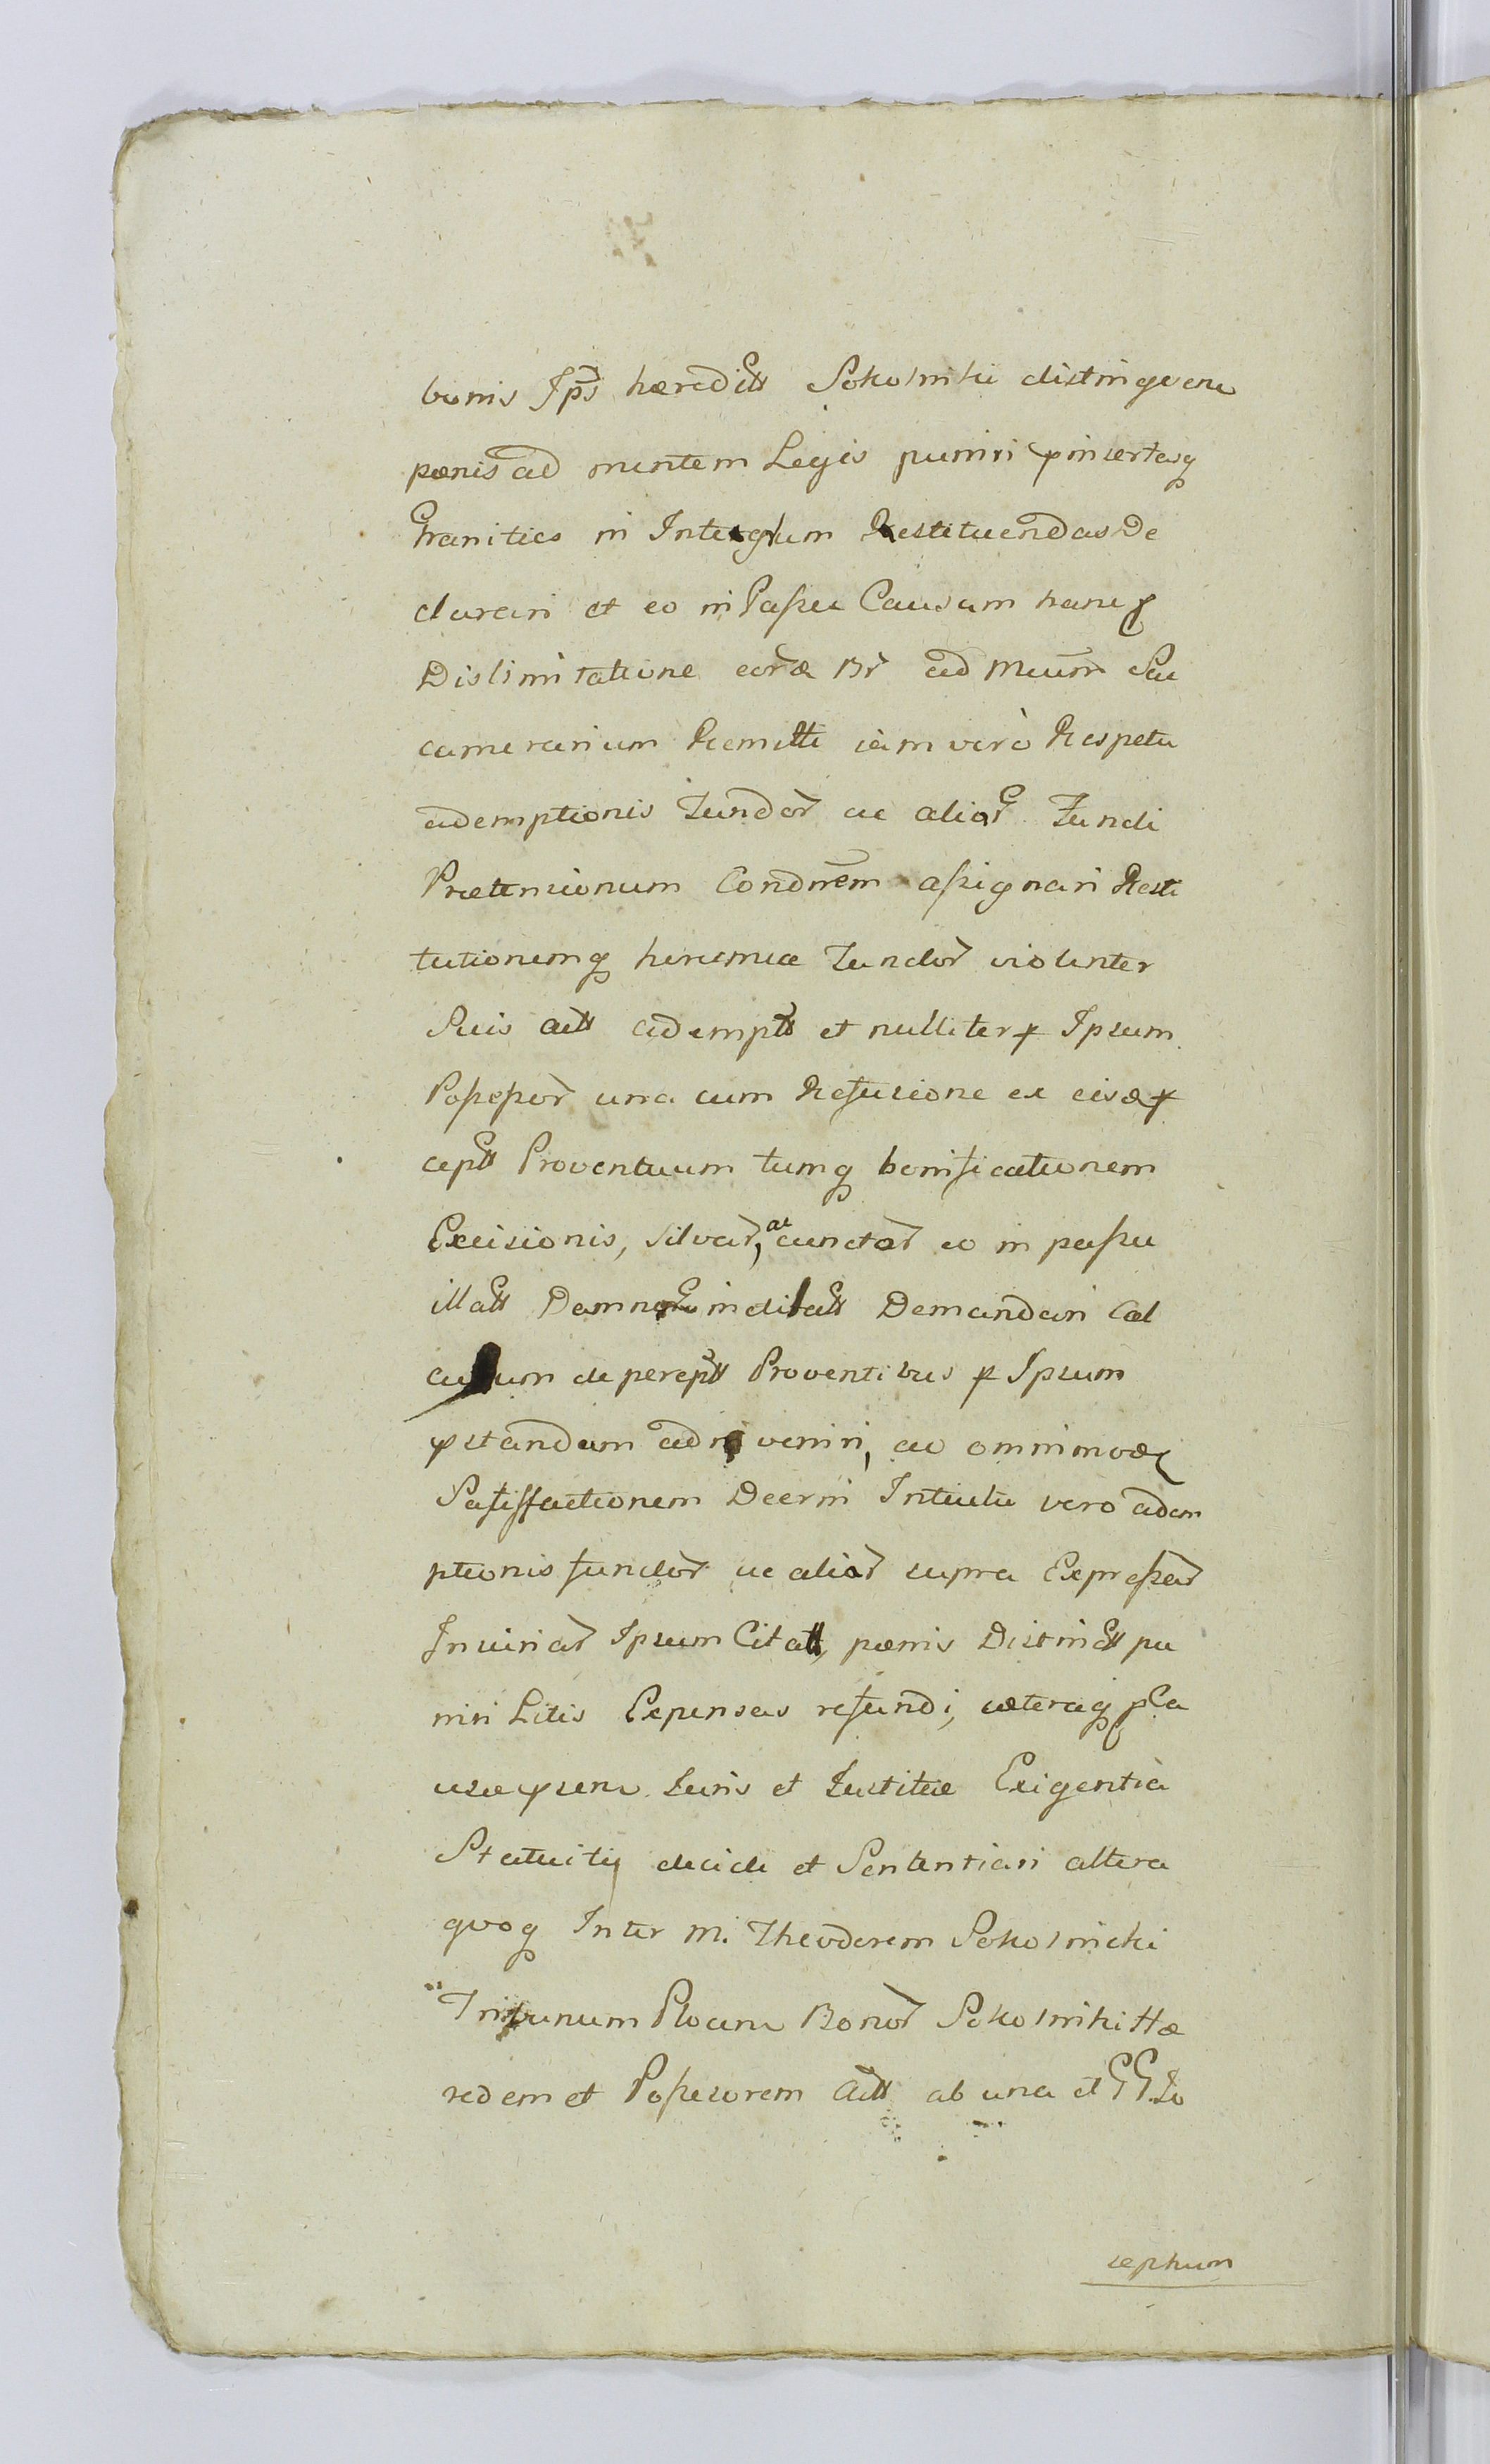 bonis Ips haeredittt Sokolniki distinguere
paenis ad mentem Legis puniri prinsertasq
Granities in Integrum Restituendas De
clarari et eo in Passu Causam hanc p
Dislimitatione eorae Br ad Mcum Suc
camerarium Remitti iam vero Respetu
ademptionis Fundor ac alior Fundi
Praetensionum Condnem assignari Resti
tutionemq heremiae Fundor violenter
Suis ait adempt et nulliter p Ipsum
Possessor una cum Refusione ex eis p
cept Proventuum tumq bonificationem
Excisionis, Silvar, ac cunctar eo in passu
illat Damnor Demandari Cal
culum de percept Proventibus p Ipsum
prstandum adinveniri, ac omnimodq
Satisffactionem Decerni Intuitu vero adem
ptionis fundor ac alior supra Expressar
Iniuriar Ipsum Citatt, paenis Distinctt pu
niri Litis Expensas refundi, caeteraq p Ca
usae prsenc Iuris et Iustitiae Exigentia
Statuitq decidi et Sententiari altera
quoq Inter M. Theodorem Sokolnicki
Tribunum Plocenc Bonor Sokolniki Hae
redem et Possesorem Actt ab una et GG. Jo
sephum